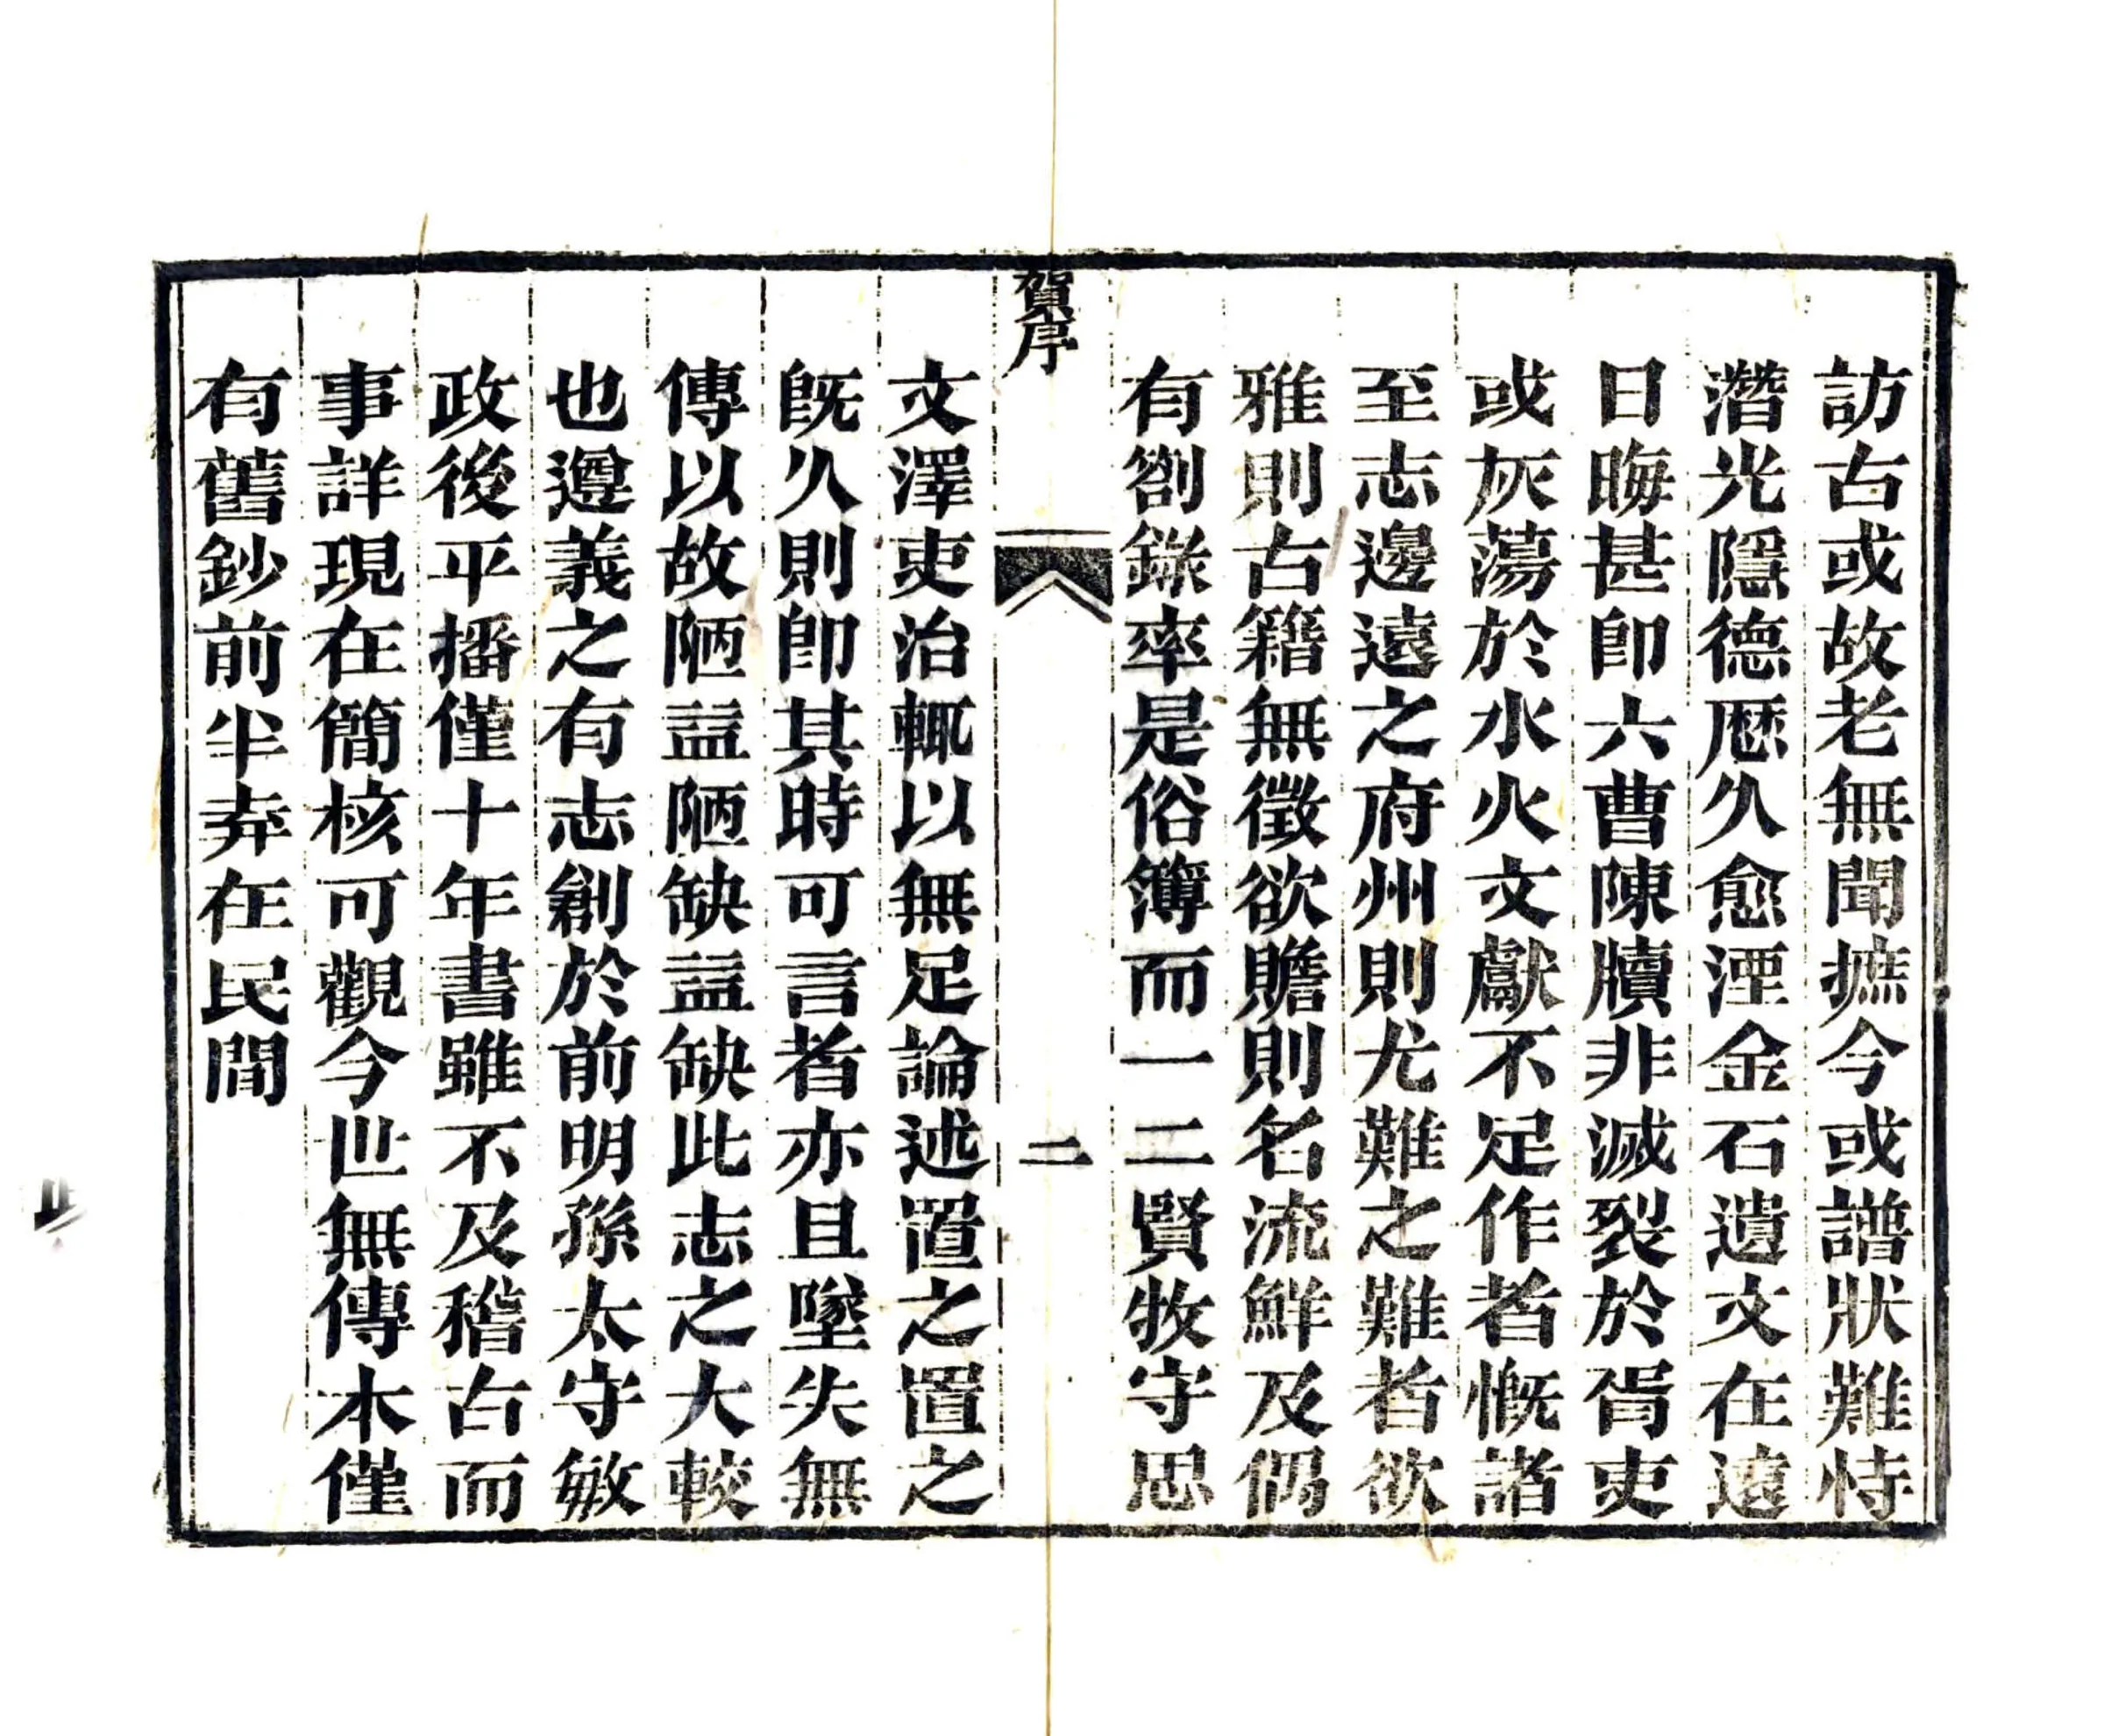 訪古或故老無聞摭今或譜狀難恃
潛光隱德歷久愈湮金石遺文在遠
日晦甚卽六曹陳牘非滅裂於胥吏
或灰蕩於水火文獻不足作者慨諸
至志邊遠之府州則尤難之難者欲
雅則古籍無徵欲贍則名流鮮及偶
有劄錄率是俗簿而一二賢牧守思
賀序
二
文澤吏治輒以無足論述置之置之
旣久則卽其時可言者亦且墜失無
傳以故陋益陋缺益缺此志之大較
也遵義之有志創於前明孫太守敏
政後平播僅十年書雖不及稽古而
事詳現在簡核可觀今世無傳本僅
有舊鈔前半弆在民間